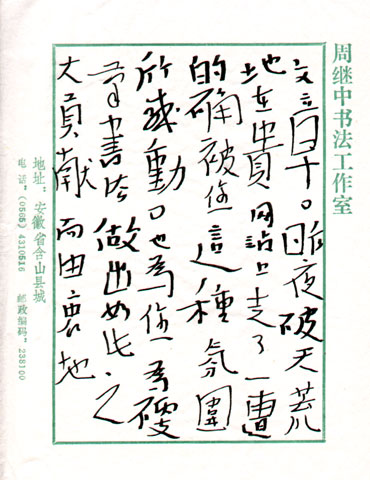 周继中书法工作室
昨夜破天荒
地在貴网站上走了一遭
的确被您這種氛圍
所感動。也為您為硬
筆書法做出如此之
大貢獻而由衷地
地址：安徽省含山县城
电话：(0565) 4310516 邮政编码：238100